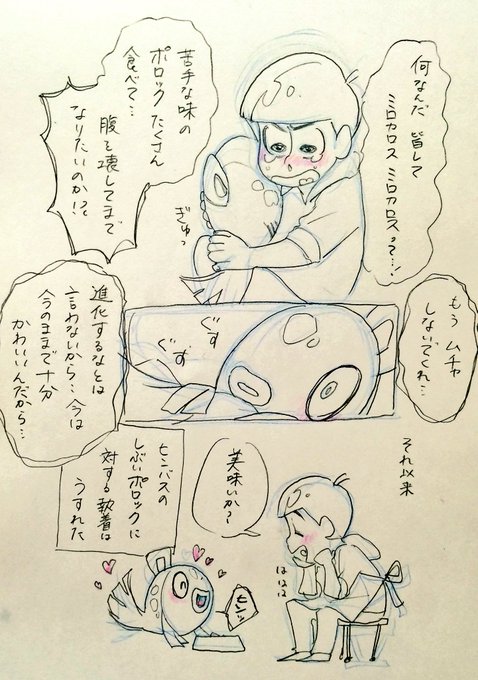 何なんだ 皆して
ミロカロス ミロカロスって…!
苦手な味の
ポロック たくさん
食べて…
腹を壊してまで
なりたいのか!?
ぎゅっ
もう ムチャ
しないでくれ…
ぐす
ぐす
進化するなとは
言わないから…今は
今のままで十分
かわいいんだから…
それ以来
美味いか〜
ははは
ヒンバスの
しぶいポロックに
対する執着は
うすれた
ヒンッ